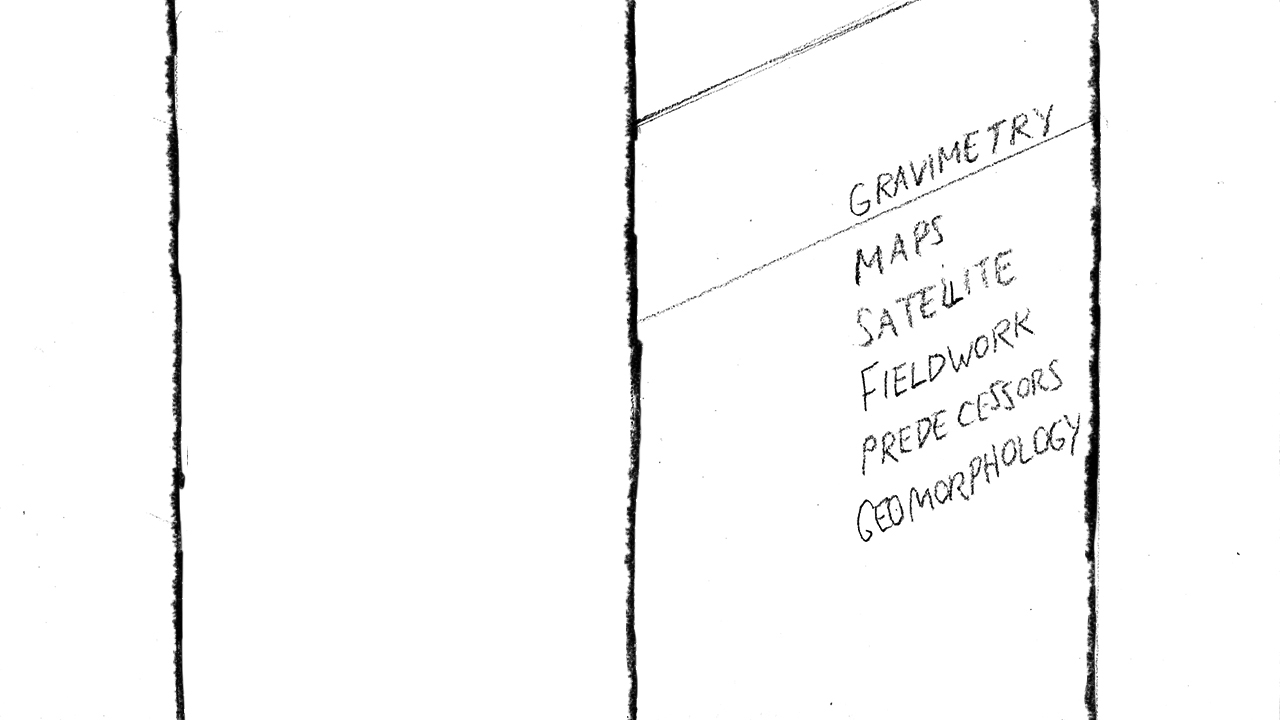 GRAVIMETRY
MAPS
SATELITE
FIELDWORK
PREDECESSORS
GEOMORPHOLOGY